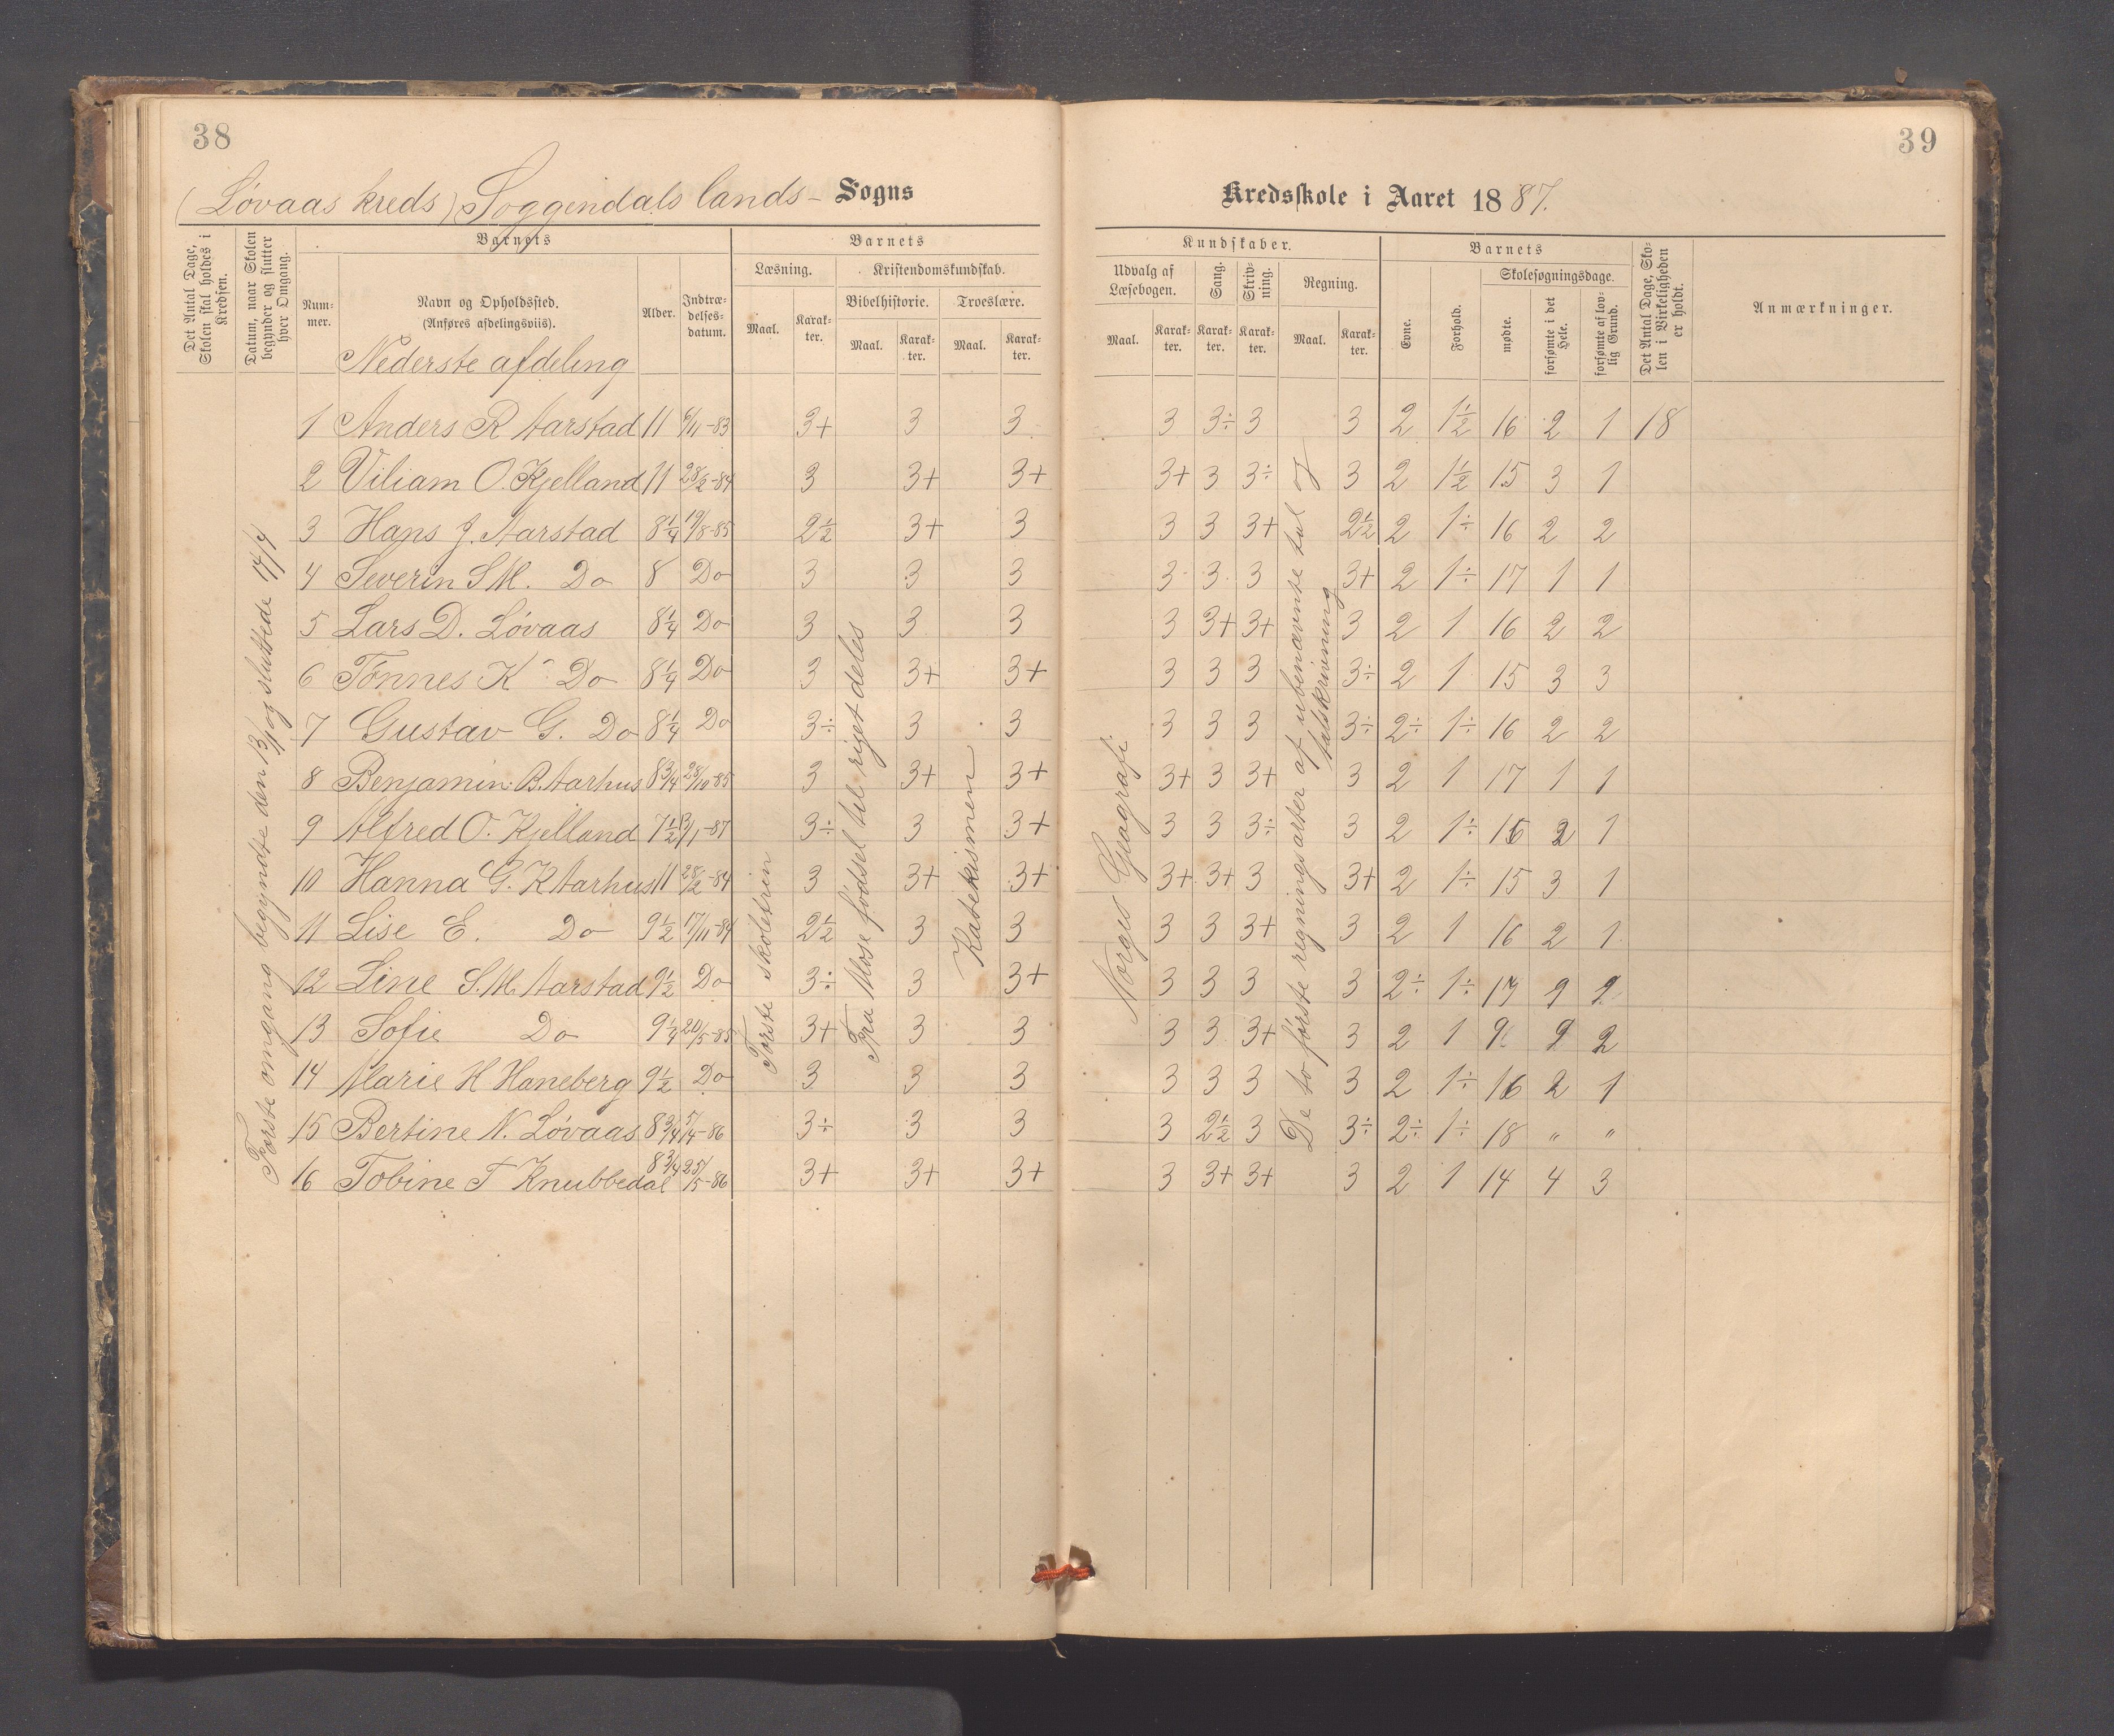 38
39
(Løvaas kreds) Soggendals lands- Sogns
Kredsskole i Aaret 1887.
Det Antal Dage, Skolen skal holdes i Kredsen.
Datum, naar Skolen begynder og slutter hver Omgang.
Barnets
Num-mer.
Navn og Opholdssted.
(Anføres afdelingsviis).
Alder.
Indtræ-delses-datum.
Barnets
Læsning.
Maal.
Karak-ter.
Kristendomskundskab.
Bibelhistorie.
Maal.
Karak-ter.
Troeslære.
Maal.
Karak-ter.
Kundskaber.
Udvalg af Læsebogen.
Maal.
Karak-ter.
Sang.
Karak-ter.
Skriv-ning.
Karak-ter.
Regning.
Maal.
Karak-ter.
Barnets
Evne.
Forhold.
Skolesøgningsdage.
mødte.
forsømte i det Hele.
forsømte af lov-lig Grund.
Det Antal Dage, Sko-len i Virkeligheden er holdt.
Anmærkninger.
Nederste afdeling
Første omgang begyndte den 13/1 og sluttede 14/4
Første skoletrin
Fra Mose fødsel til riget deles
Katekismen
Norges Geografi
De to første regningsarter af ubenævnte tal og talskrivning
1 Anders R Aarstad 11 6/11-83 3+ 3 3 3 3÷ 3 3 2 1½ 16 2 1 18
2 Viliam O. Kjelland 11 28/2-84 3 3+ 3+ 3+ 3 3÷ 3 2 1½ 15 3 1
3 Hans J. Aarstad 8¼ 19/8-85 2½ 3+ 3 3 3 3+ 2½ 2 1÷ 16 2 2
4 Severin S M. Do 8 Do 3 3 3 3 3 3 3+ 2 1÷ 17 1 1
5 Lars D. Løvaas 8¼ Do 3 3 3 3 3+ 3+ 3 2 1 16 2 2
6 Tønnes K Do 8¼ Do 3 3+ 3+ 3 3 3 3÷ 2 1 15 3 3
7 Gustav G. Do 8¼ Do 3÷ 3 3 3 3 3 3÷ 2÷ 1÷ 16 2 2
8 Benjamin B. Aarhus 8¾ 28/10-85 3 3+ 3+ 3+ 3 3+ 3 2 1 17 1 1
9 Alfred O. Kjelland 7½ 13/1-87 3÷ 3 3+ 3 3 3÷ 3 2 1÷ 16 2 1
10 Hanna G. K Aarhus 11 28/2-84 3 3+ 3+ 3+ 3+ 3 3+ 2 1÷ 15 3 1
11 Lise E. Do 9½ 17/11-84 2½ 3 3 3 3 3+ 3 2 1 16 2 1
12 Line S. M. Aarstad 9½ Do 3÷ 3 3+ 3 3 3 3 2÷ 1÷
13 Sofie Do 9¼ 20/5-85 3+ 3 3 3 3 3+ 3 2 1 9 9 2
14 Marie H Haneberg 9½ Do 3 3 3 3 3 3 3 2 1÷ 16 2 1
15 Bertine N. Løvaas 8¾ 5/4-86 3÷ 3 3 3 2½ 3 3÷ 2÷ 1÷ 18 " "
16 Tobine T Knubbedal 8¾ 25/5-86 3+ 3+ 3+ 3 3+ 3+ 3 2 1 14 4 3